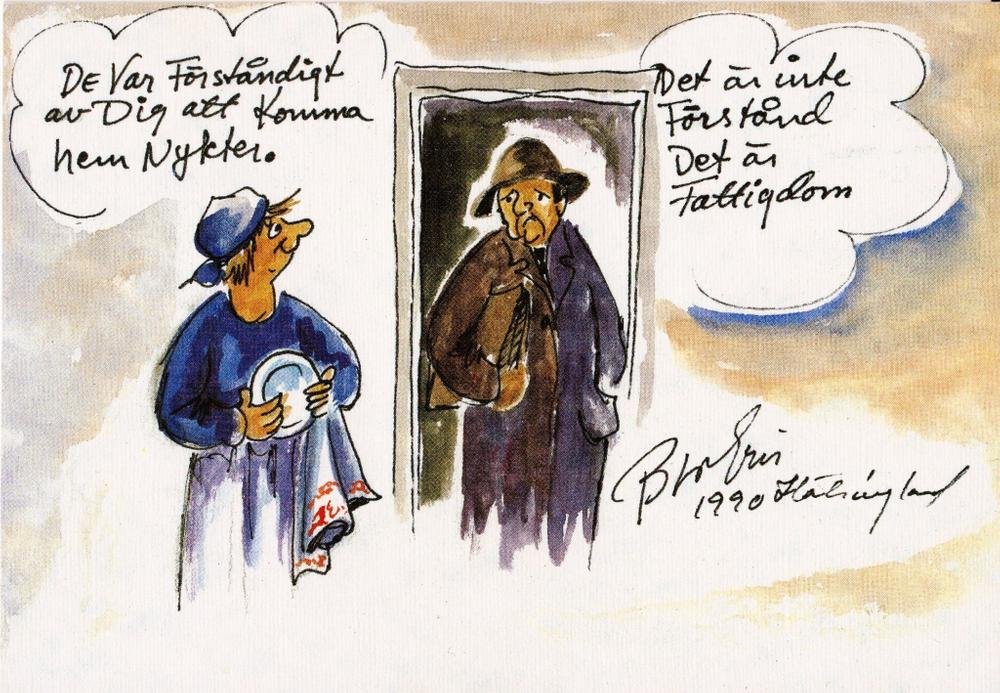 De Var Förståndigt
av Dig att Komma
hem Nykter.
Det är inte
Förstånd
Det är
Fattigdom
1990 Hälsingland
Æ.